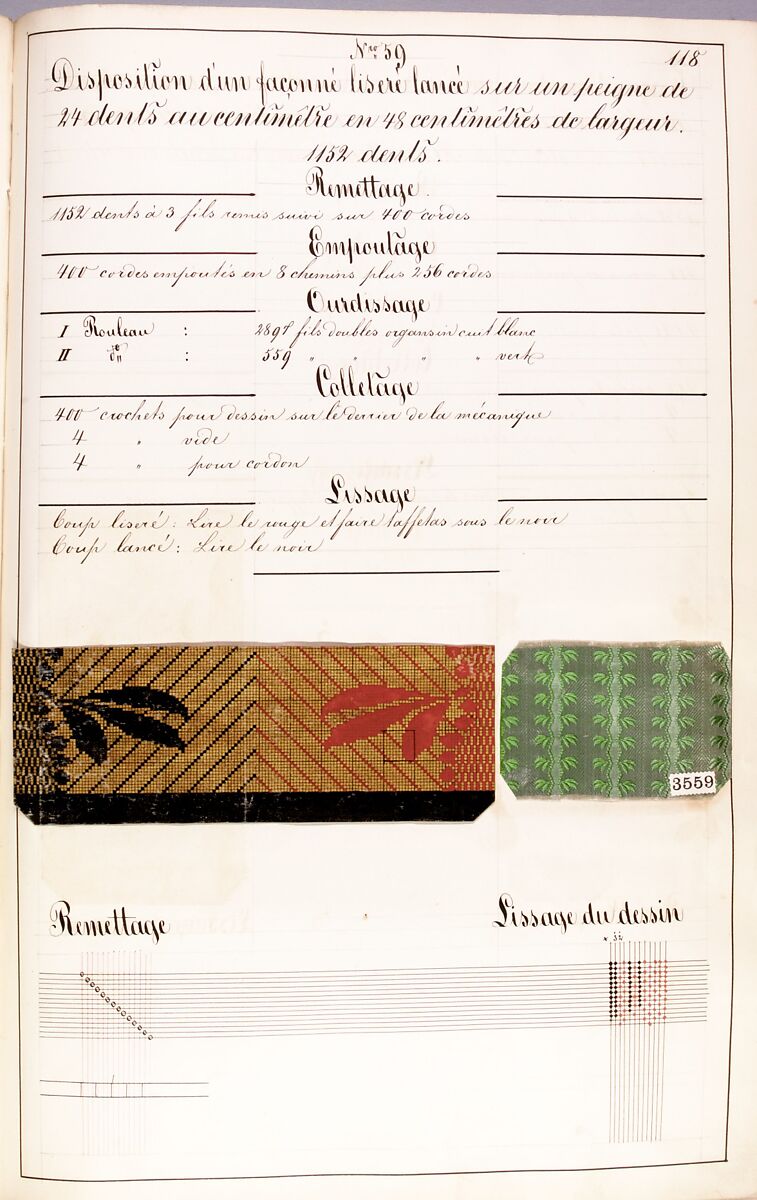 Nro 59
118
Disposition d'un façonné liseré lancé sur un peigne de
24 dents au centimètre en 48 centimètres de largeur.
1152 dents.
Remettage.
1152 dents à 3 fils remis suivi sur 400 cordes
Empoutage
400 cordes empoutés en 8 chemins plus 256 cordes
Ourdissage
I Rouleau : 2897 fils doubles organsin cuit blanc
II do : 559 " " " " vert
Colletage
400 crochets pour dessin sur le derrier de la mécanique
4 " vide
4 " pour cordon
Lissage
Coup liseré : Lire le rouge et faire taffetas sous le noir
Coup lancé : Lire le noir
3559
Remettage
Lissage du dessin